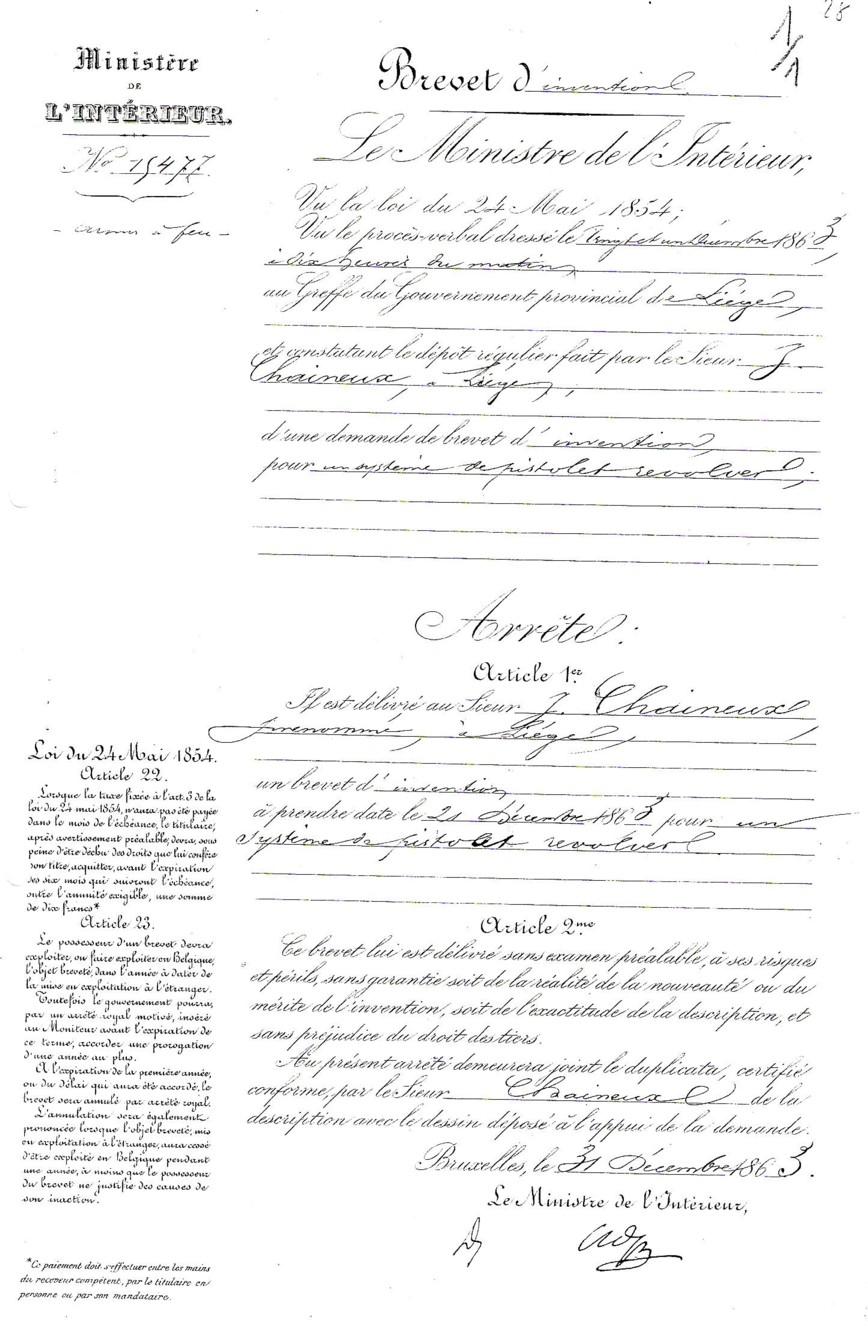 28
1/1
Ministère
DE
L'INTÉRIEUR.
No 15477.
- armes à feu -
Brevet d'invention
Le Ministre de l'Intérieur,
Vu la loi du 24 Mai 1854;
Vu le procès-verbal dressé le vingt et un Décembre 1863,
à dix heures du matin,
au Greffe du Gouvernement provincial de Liége,
et constatant le dépôt régulier fait par le Sieur J.
Chaineux, à Liége,;
d'une demande de brevet d'invention,
pour un système de pistolet revolver;
Arrête:
Article 1er
Il est délivré au Sieur J. Chaineux,
prénommé, à Liége,
un brevet d'invention,
à prendre date le 21 Décembre 1863 pour un
système de pistolet revolver
Article 2me
Ce brevet lui est délivré sans examen préalable, à ses risques
et périls, sans garantie soit de la réalité de la nouveauté ou du
mérite de l'invention, soit de l'exactitude de la description, et
sans préjudice du droit des tiers.
Au présent arrêté demeurera joint le duplicata, certifié
conforme, par le Sieur Chaineux de la
description avec le dessin déposé à l'appui de la demande.
Bruxelles, le 31 Décembre 1863.
Le Ministre de l'Intérieur,
Loi du 24 Mai 1854.
Article 22.
Lorsque la taxe fixée à l'art. 3 de la
loi du 24 mai 1854, n'aura pas été payée
dans le mois de l'échéance, le titulaire,
après avertissement préalable, devra, sous
peine d'être déchu des droits que lui confère
son titre, acquitter, avant l'expiration
des six mois qui suivront l'échéance,
outre l'annuité exigible, une somme
de dix francs*
Article 23.
Le possesseur d'un brevet devra
exploiter, ou faire exploiter en Belgique,
l'objet breveté, dans l'année à dater de
la mise en exploitation à l'étranger.
Toutefois le gouvernement pourra,
par un arrêté royal motivé, inséré
au Moniteur avant l'expiration de
ce terme, accorder une prorogation
d'une année au plus.
A l'expiration de la première année,
ou du délai qui aura été accordé, le
brevet sera annulé par arrêté royal.
L'annulation sera également
prononcée lorsque l'objet breveté, mis
en exploitation à l'étranger, aura cessé
d'être exploité en Belgique pendant
une année, à moins que le possesseur
du brevet ne justifie des causes de
son inaction.
*Ce paiement doit s'effectuer entre les mains
du receveur compétent, par le titulaire en
personne ou par son mandataire.